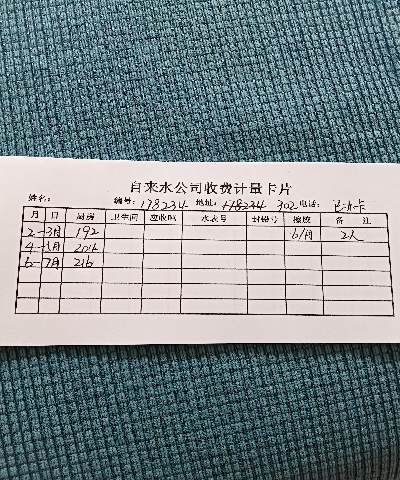 自来水公司收费计量卡片
姓名: 编号: 178234 地址: 178234 302 电话:
月 日 厨房 卫生间 应收吨 水表号 封铅号 换胶 备注
2-3月 192 6/月 2人
4-5月 204
6-7月 216